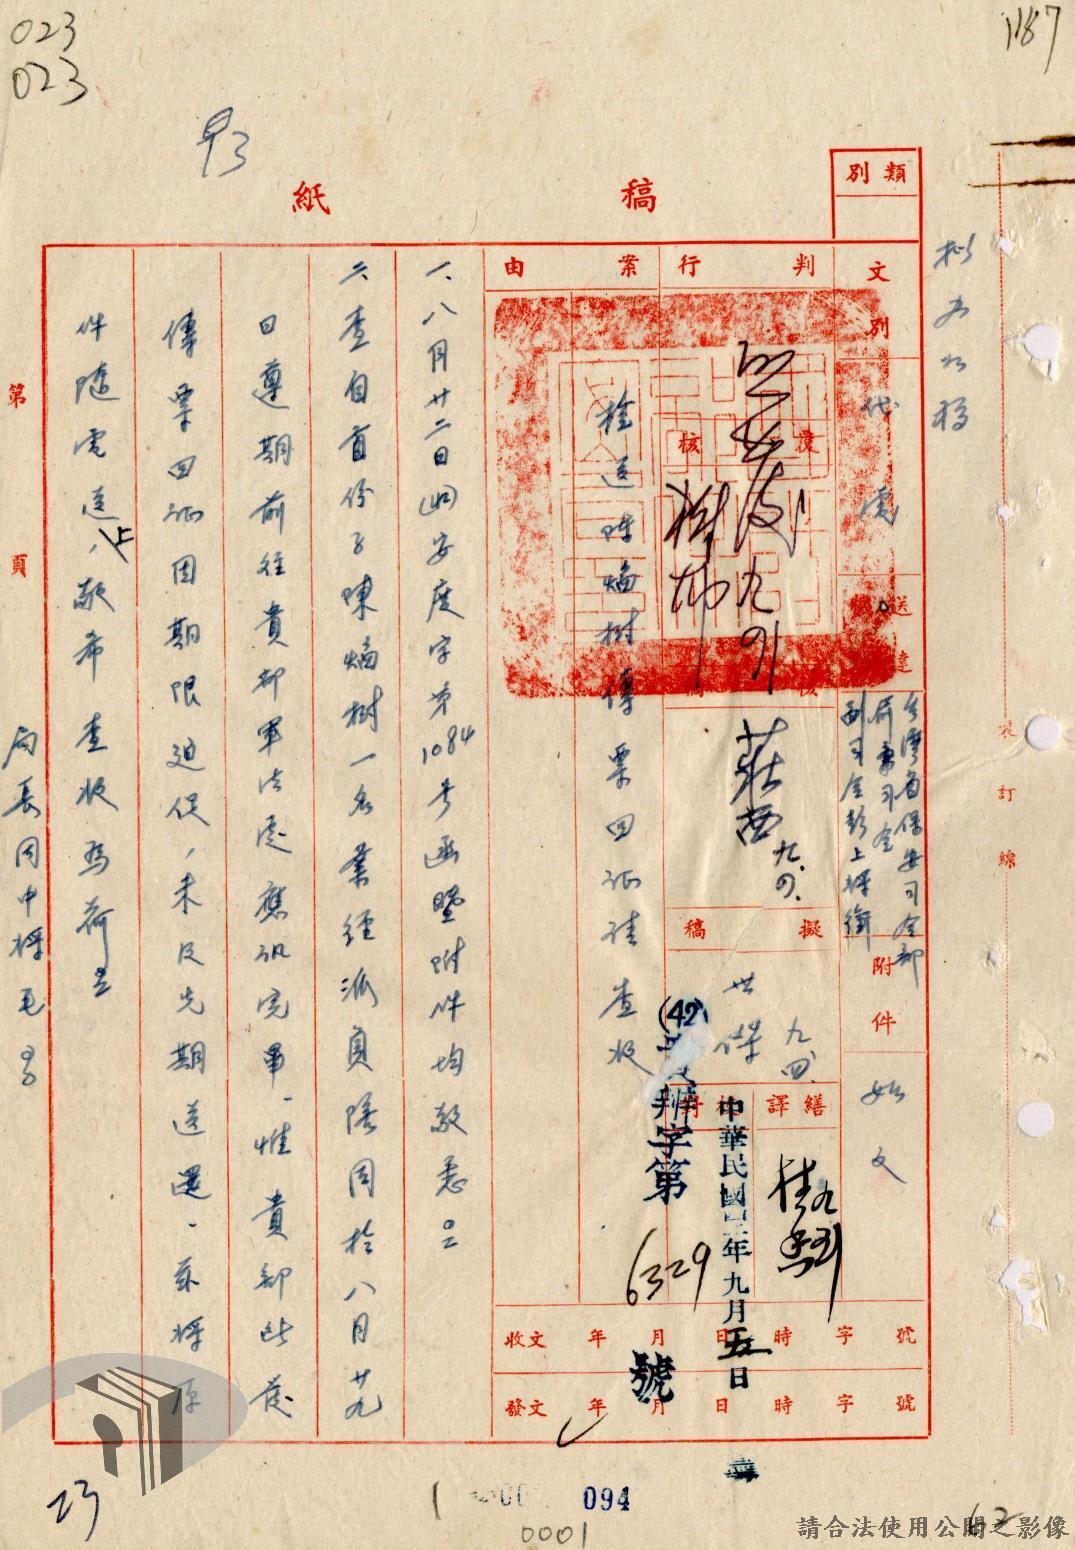 023
023
1187
早了
稿紙
類別
擬為如稿
文別
代電
送達機
台灣省保安司令部
兼司令
副司令彭上將銜
附件
如文
判行
核
莊西
九.四.
擬稿
世傑
九.四.
繕譯
校對
(42)
辦字第
6329
號
中華民國四二年九月五日
案由
檢送陳焔樹傳票回証請查收
收文 年 月 日 時 字 號
發文 年 月 日 時 字 號
一、八月廿二日(四)安度字第1084号函暨附件均敬悉
二、查自首份子陳焔樹一名業經派員陪同於八月廿九
日遵期前往貴部軍法處應訊完畢、惟貴部此發
傳票回証因期限迫促,未及先期送還、茲將原
件隨電送上,敬希查收為荷
局長周中將毛
裝訂線
第頁
23
094
0001
62
請合法使用公開之影像